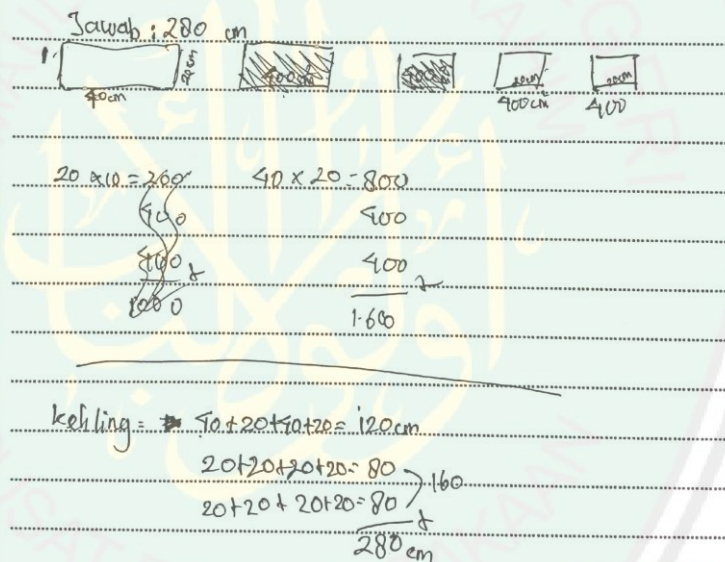 Jawab : 280 cm
1.
40cm
20cm
400cm
20cm
400cm²
20cm
400
20 x 10 = 200
400
400
40 x 20 = 800
400
400
1.600
keliling = 40+20+40+20= 120cm
20+20+20+20= 80
160
20+20+20+20= 80
280 cm